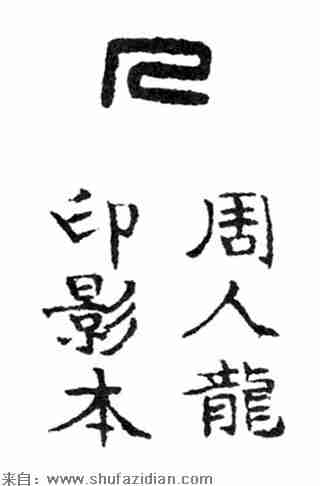 周人龍
印影本
来自：www.shufazidian.com